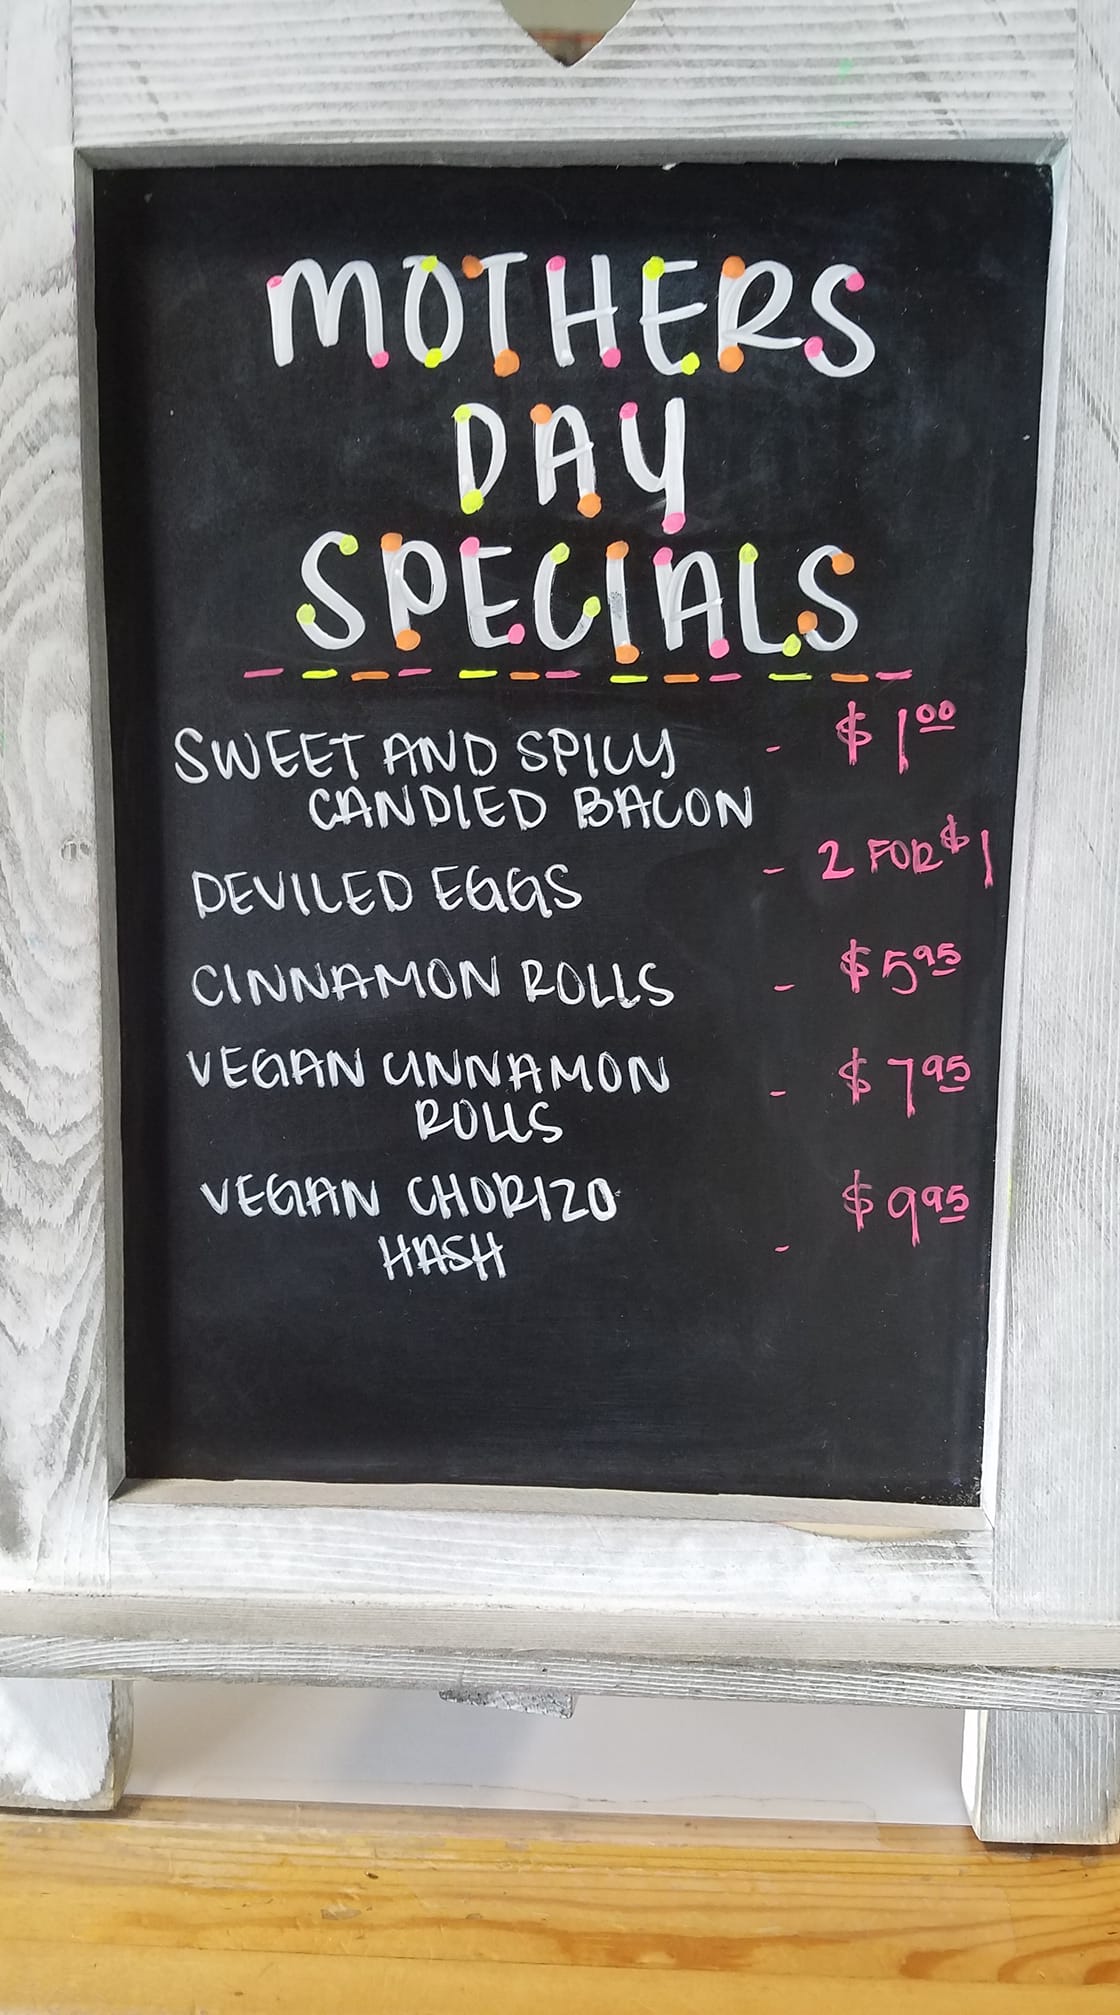 MOTHERS
DAY
SPECIALS
SWEET AND SPICY - $1.00
CANDIED BACON
DEVILED EGGS - 2 FOR $1
CINNAMON ROLLS - $5.95
VEGAN CINNAMON - $7.95
ROLLS
VEGAN CHORIZO $9.95
HASH -